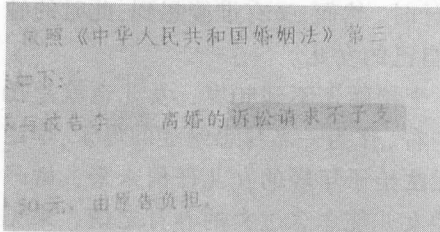 依照《中华人民共和国婚姻法》第三
如下:
与被告李 离婚的诉讼请求不予支
50元，由原告负担。